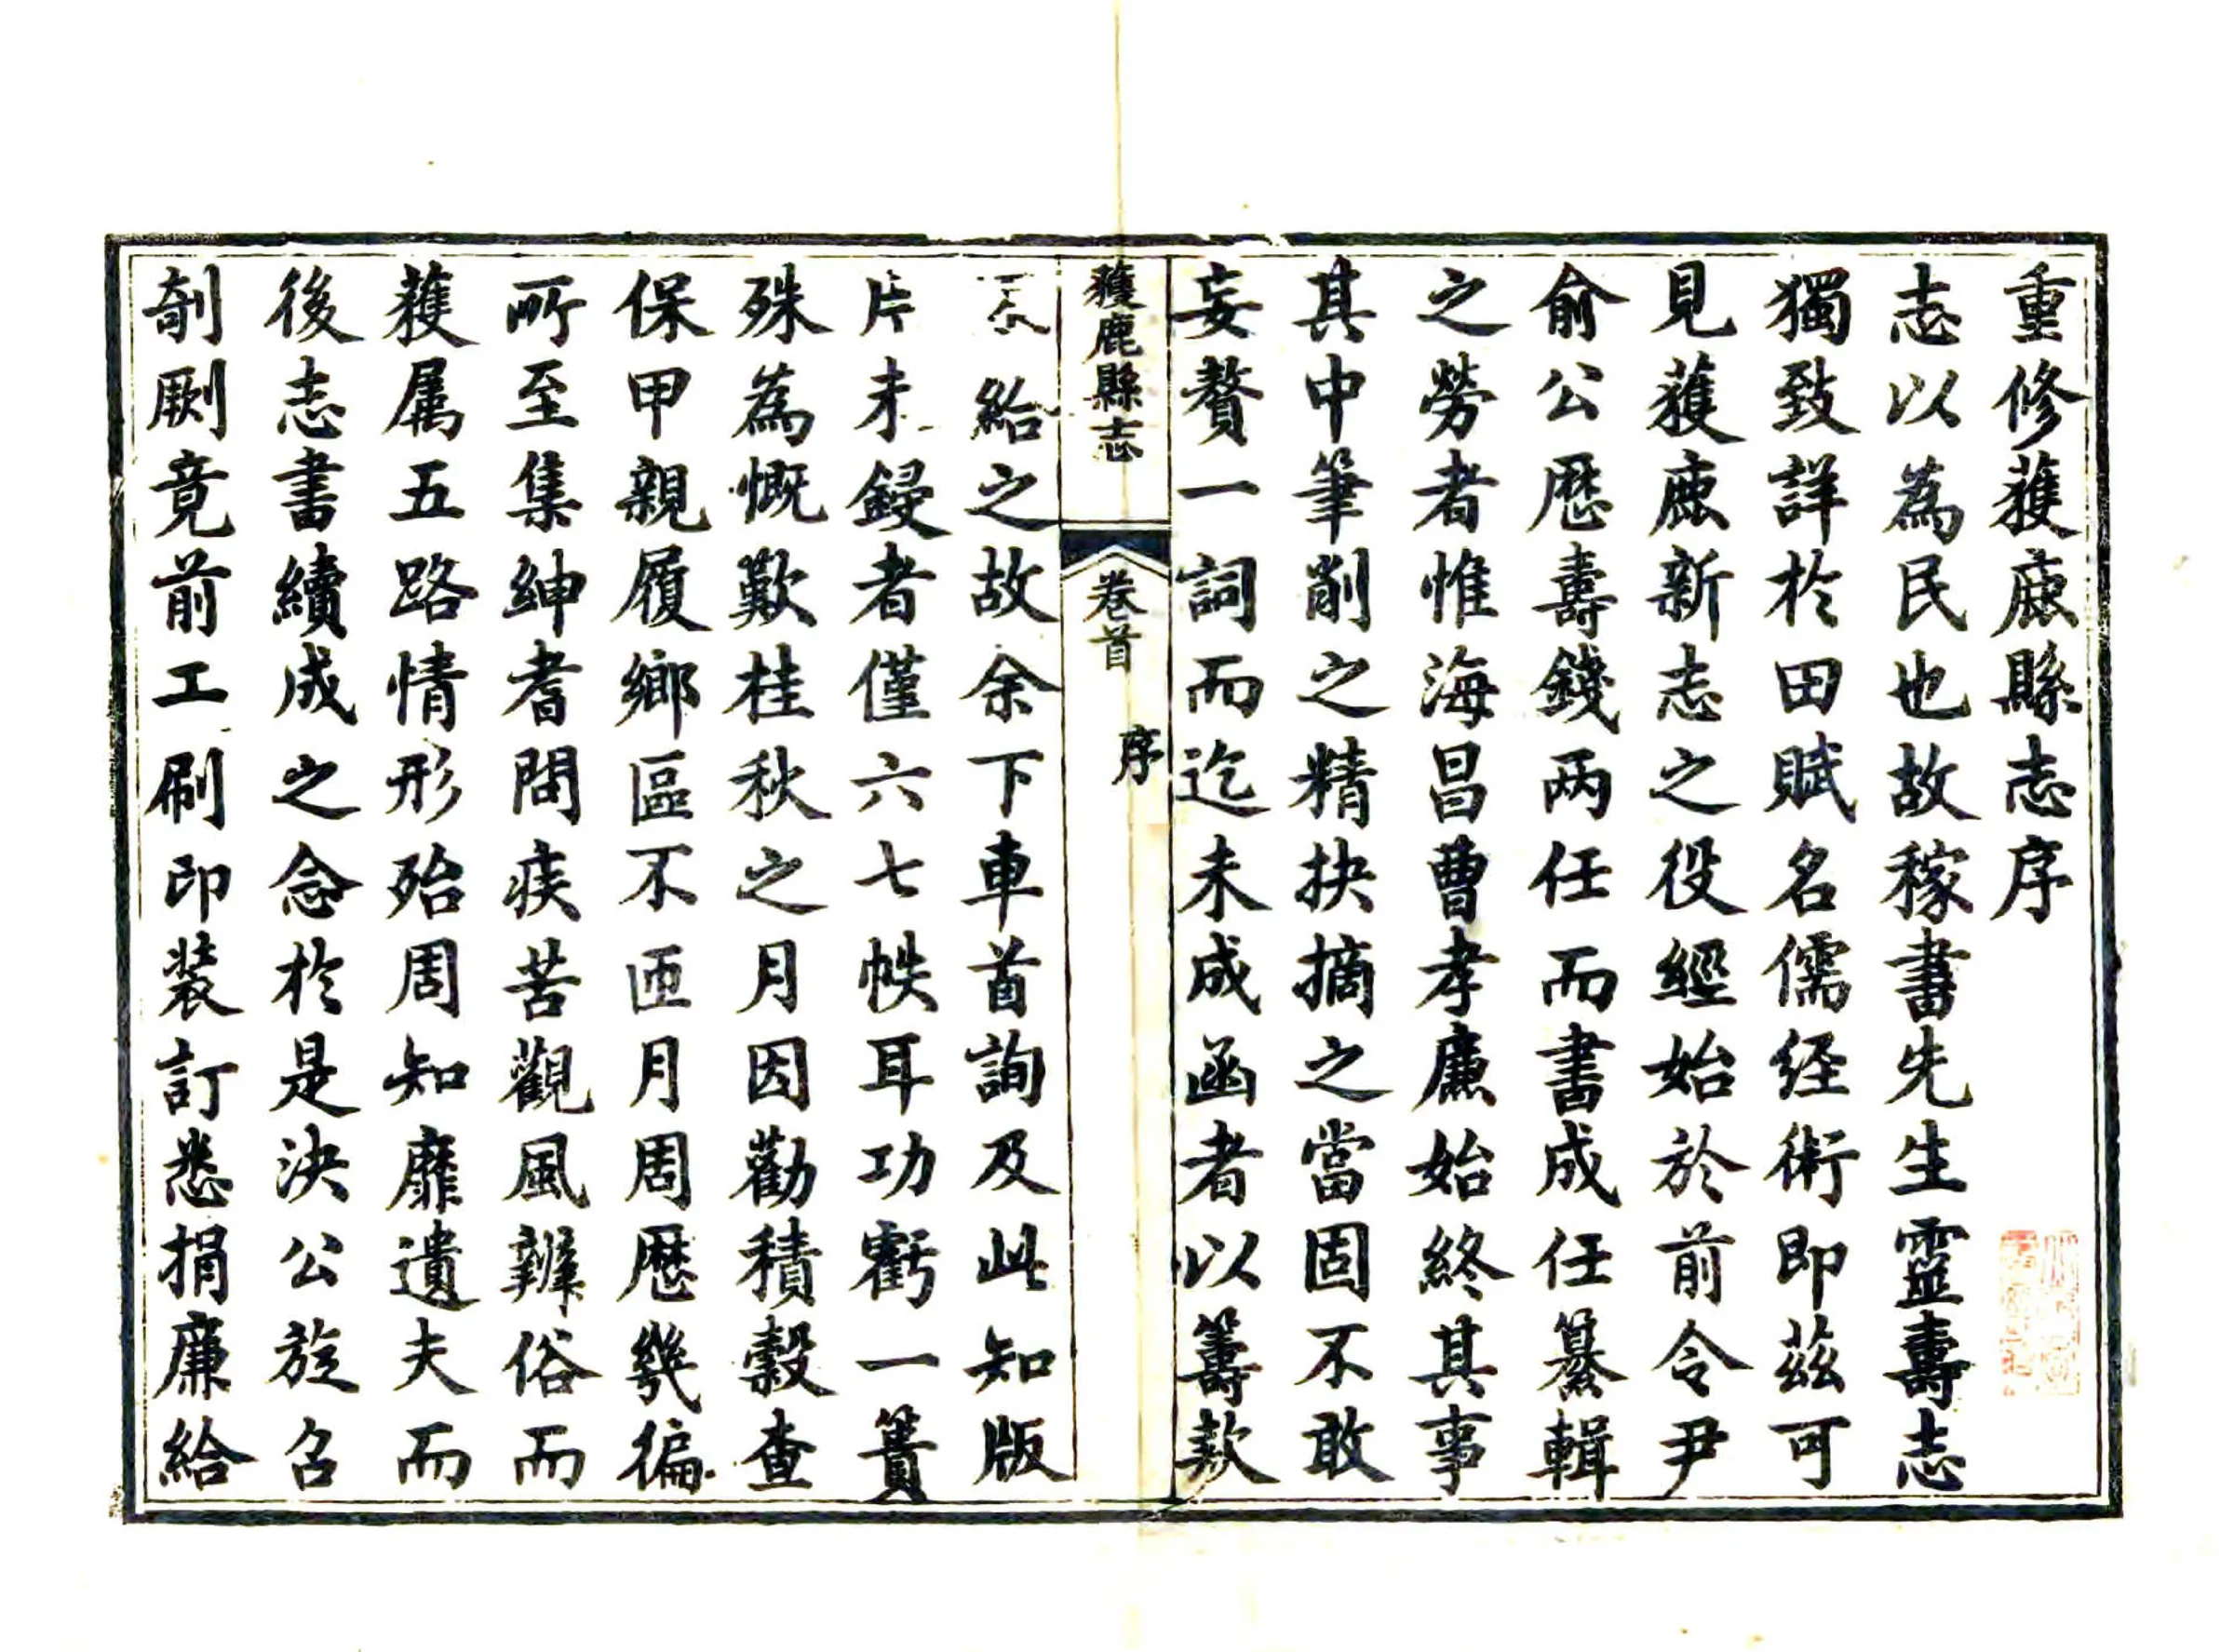 重修獲鹿縣志序
志以為民也故稼書先生靈壽志
獨致詳於田賦名儒経術即茲可
見獲鹿新志之役經始於前令尹
俞公歴壽錢两任而書成任纂輯
之勞者惟海昌曹孝廉始終其事
其中筆削之精抉摘之當固不敢
妄贅一詞而迄未成函者以籌款
給之故余下車首詢及此知版
片未鋟者僅六七帙耳功虧一簣
殊為慨歎桂秋之月因勸積穀查
保甲親履鄉區不匝月周歴幾徧
所至集紳耆問疾苦觀風辨俗而
獲属五路情形殆周知靡遺夫而
後志書續成之念於是決公旋召
剞劂竟前工刷印装訂悉捐廉給
獲鹿縣志
卷首
序